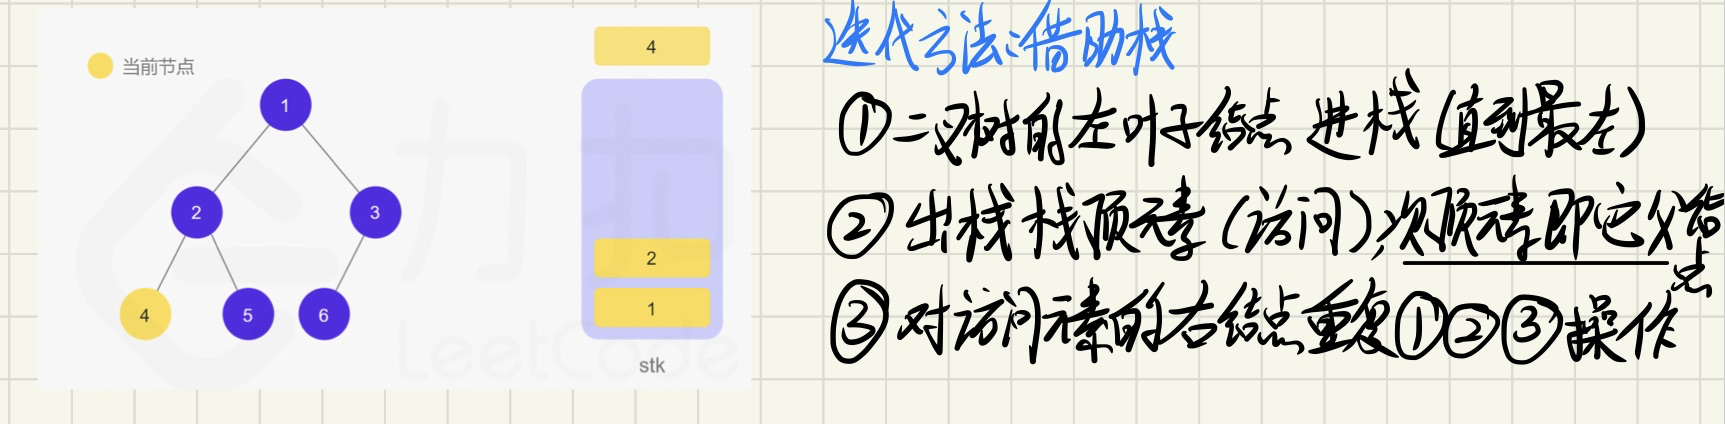 当前节点
1
2
3
4
5
6
4
2
1
stk
力扣
LeetCode
迭代方法:借助栈
①二叉树的左叶子结点 进栈(直到最左)
②出栈栈顶元素(访问),次顶元素即它父结点
③对访问元素的右结点重复①②③操作